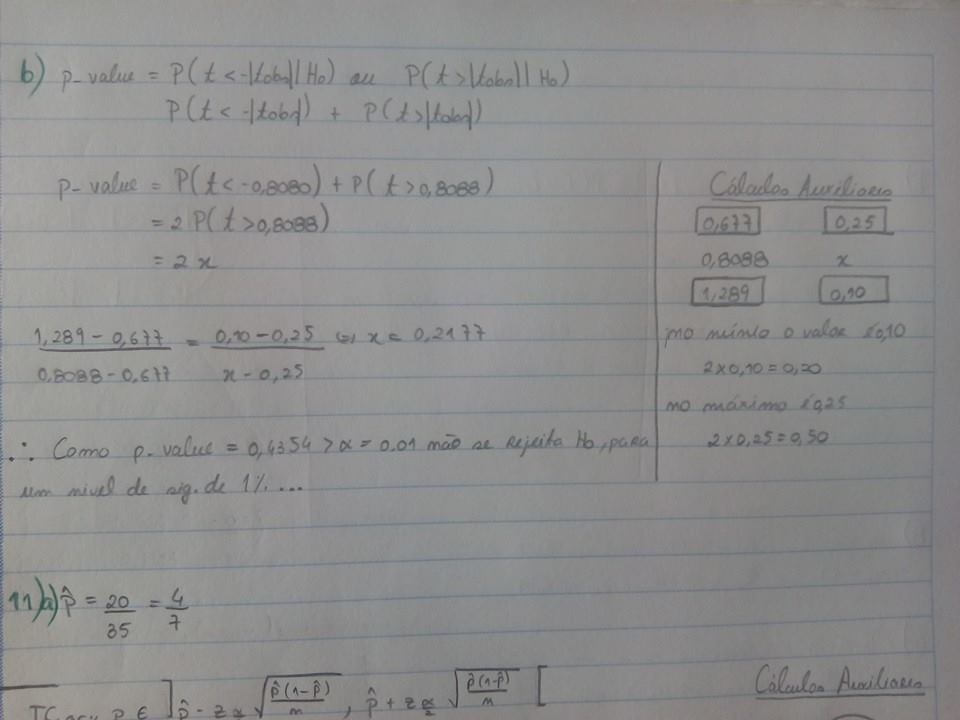 b) p-value = P(t < -|tobs| | H0) ou P(t > |tobs| | H0)
P(t < -|tobs|) + P(t > |tobs|)
p-value = P(t < -0,8080) + P(t > 0,8088)
= 2 P(t > 0,8088)
= 2 x
(1,289 - 0,677) / (0,8088 - 0,677) = (0,10 - 0,25) / (x - 0,25) ⇔ x = 0,2177
∴ Como p-value = 0,4354 > α = 0.01 não se rejeita H0, para
um nivel de sig. de 1%. ...
Cálculos Auxiliares
0,677 0,25
0,8088 x
1,289 0,10
no mínimo o valor é 0,10
2 x 0,10 = 0,20
no máximo é 0,25
2 x 0,25 = 0,50
11)a) p̂ = 20/35 = 4/7
p ∈ ] p̂ - z α √(p̂(1-p̂)/n) , p̂ + z α/2 √(p̂(1-p̂)/n) [
Cálculos Auxiliares